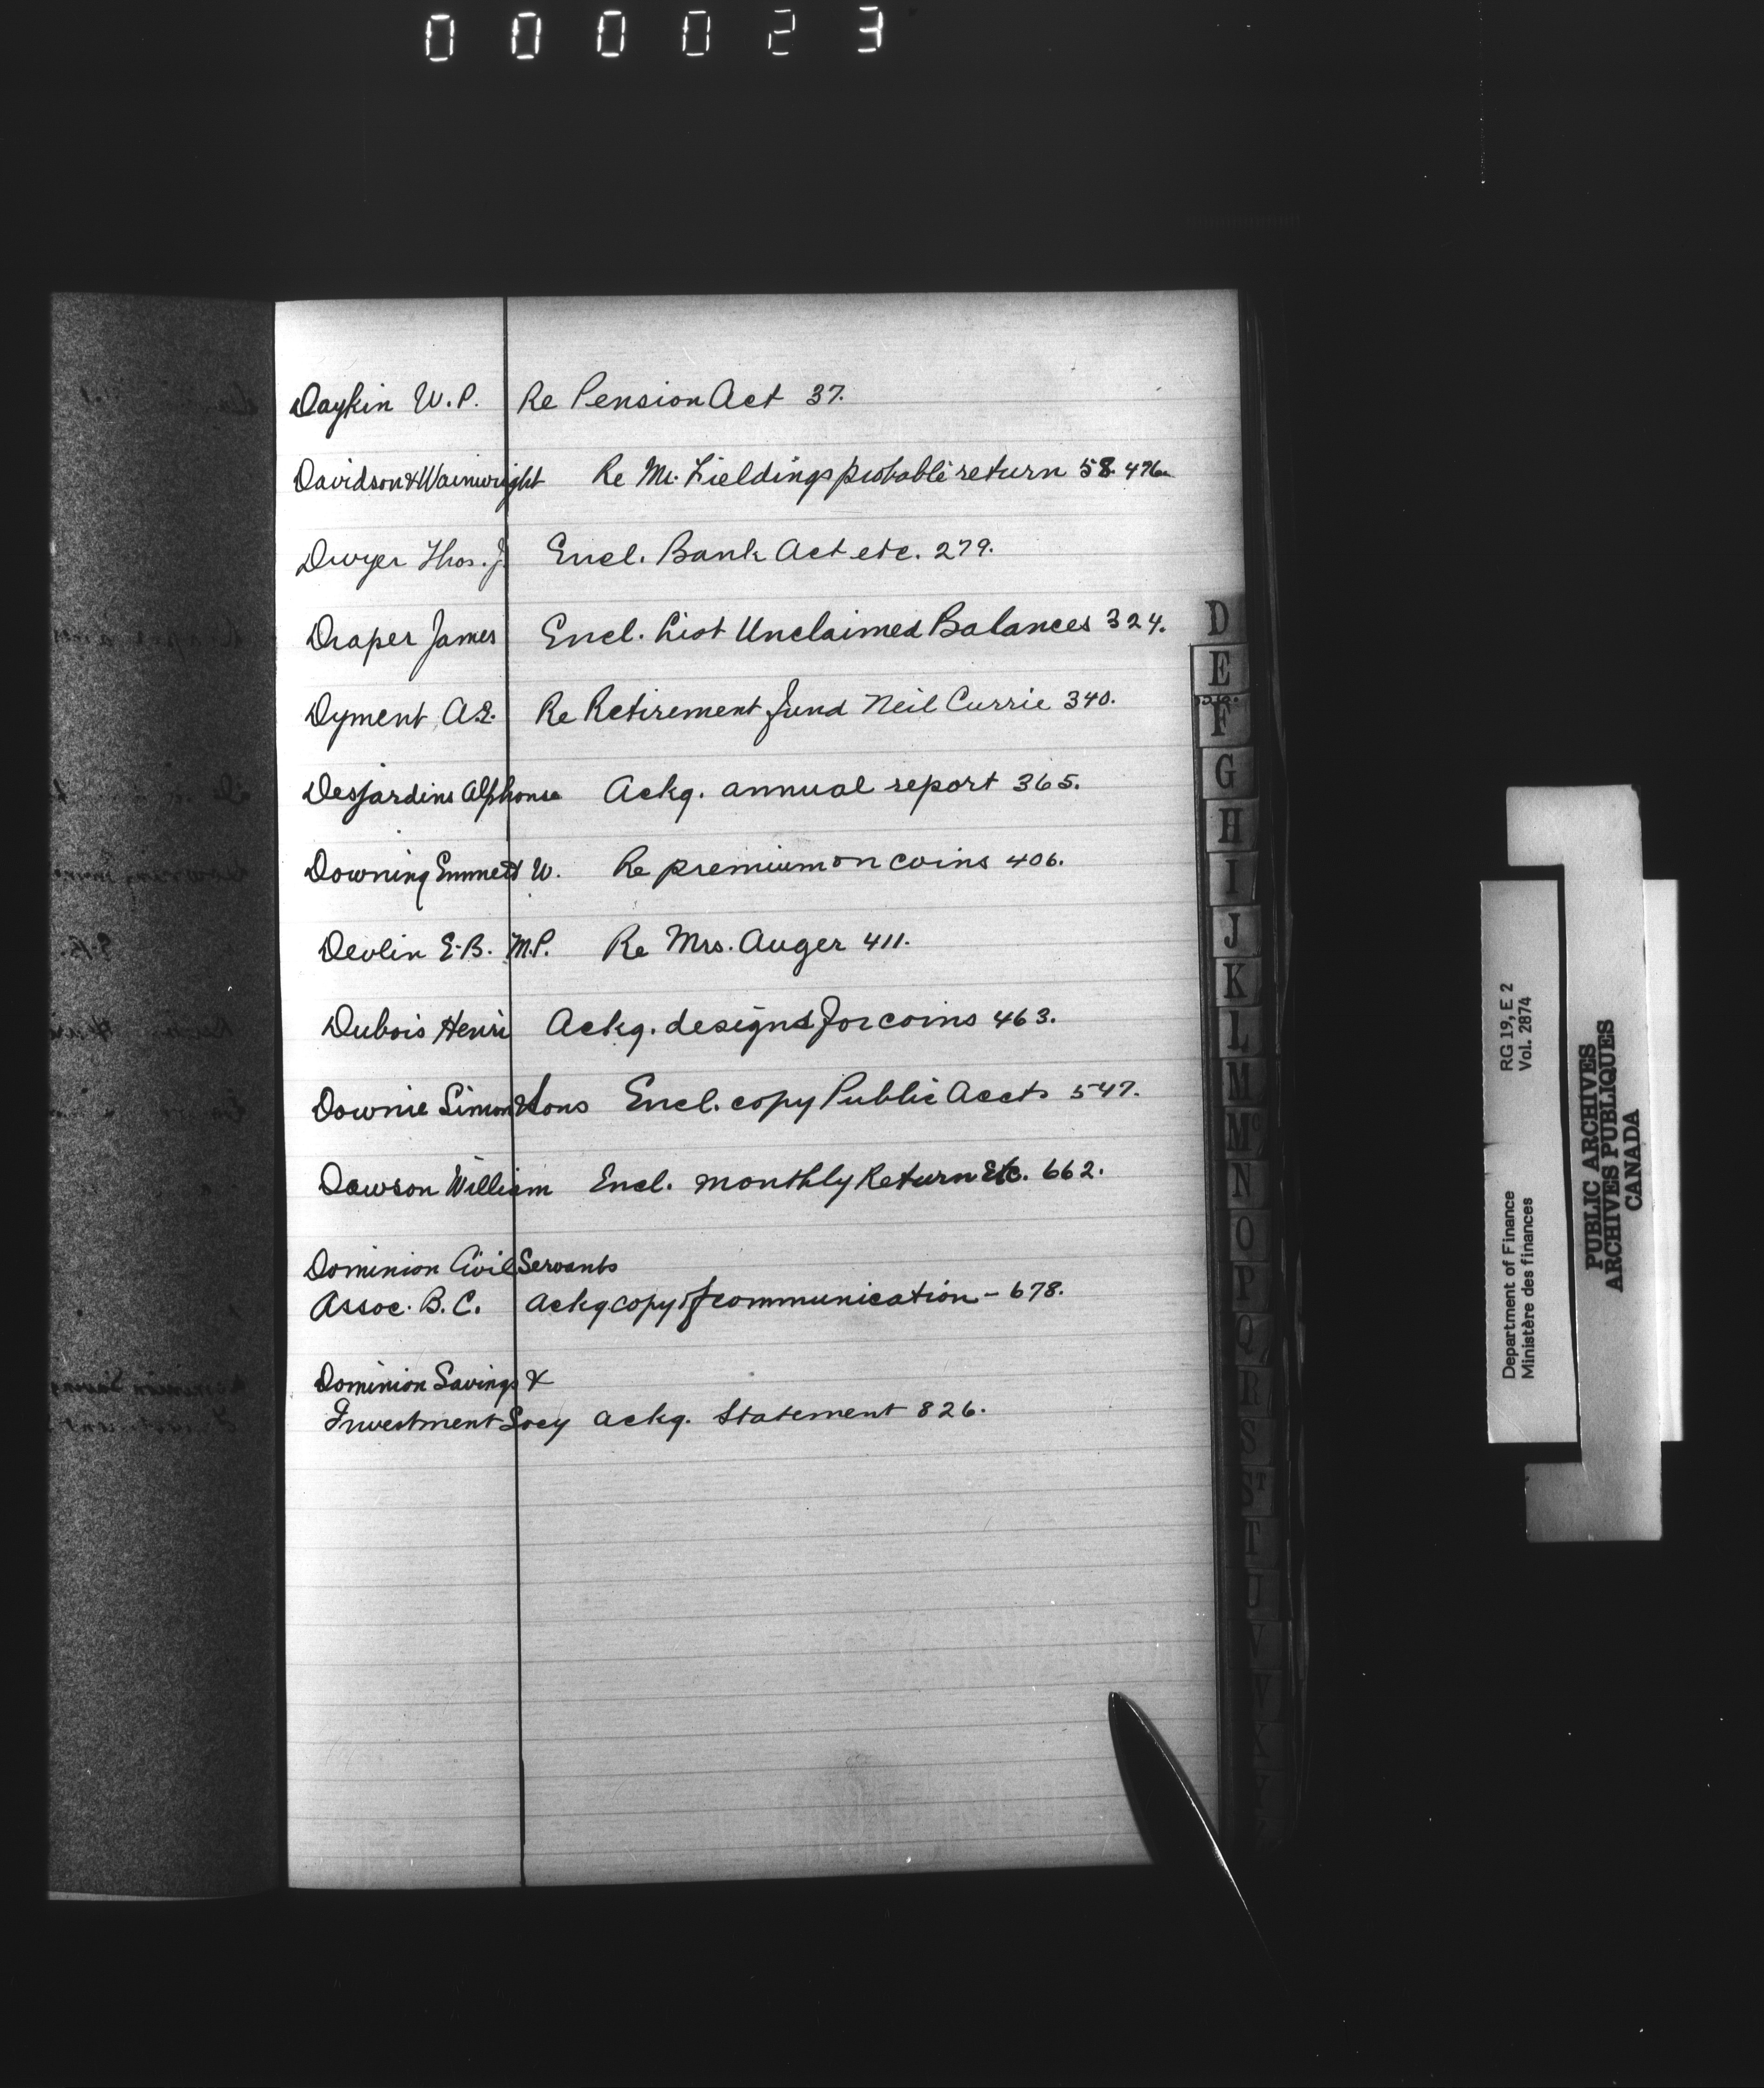 000023
Daykin W.P. Re Pension Act 37.
Davidson & Wainwright Re Mr. Fieldings probable return 58. 476.
Dwyer Thos. J. Encl. Bank Act etc. 279.
Draper James Encl. List Unclaimed Balances 324.
Dyment A.E. Re Retirement fund Neil Currie 340.
Desjardins Alphonse Ackg. annual report 365.
Downing Emmett W. Re premium on coins 406.
Devlin E.B. M.P. Re Mrs. Auger 411.
Dubois Henri Ackg. designs for coins 463.
Downie Simon & Sons Encl. copy Public Accts 547.
Dawson William Encl. monthly Return Etc. 662.
Dominion Civil Servants
Assoc. B.C. Ackg copy of communication - 678.
Dominion Savings &
Investment Socy Ackg. Statement 826.
D
E
F
G
H
I
J
K
L
M
Mc
N
O
P
Q
R
S
ST
T
U
V
Department of Finance RG 19, E 2
Ministère des finances Vol. 2874
PUBLIC ARCHIVES
ARCHIVES PUBLIQUES
CANADA